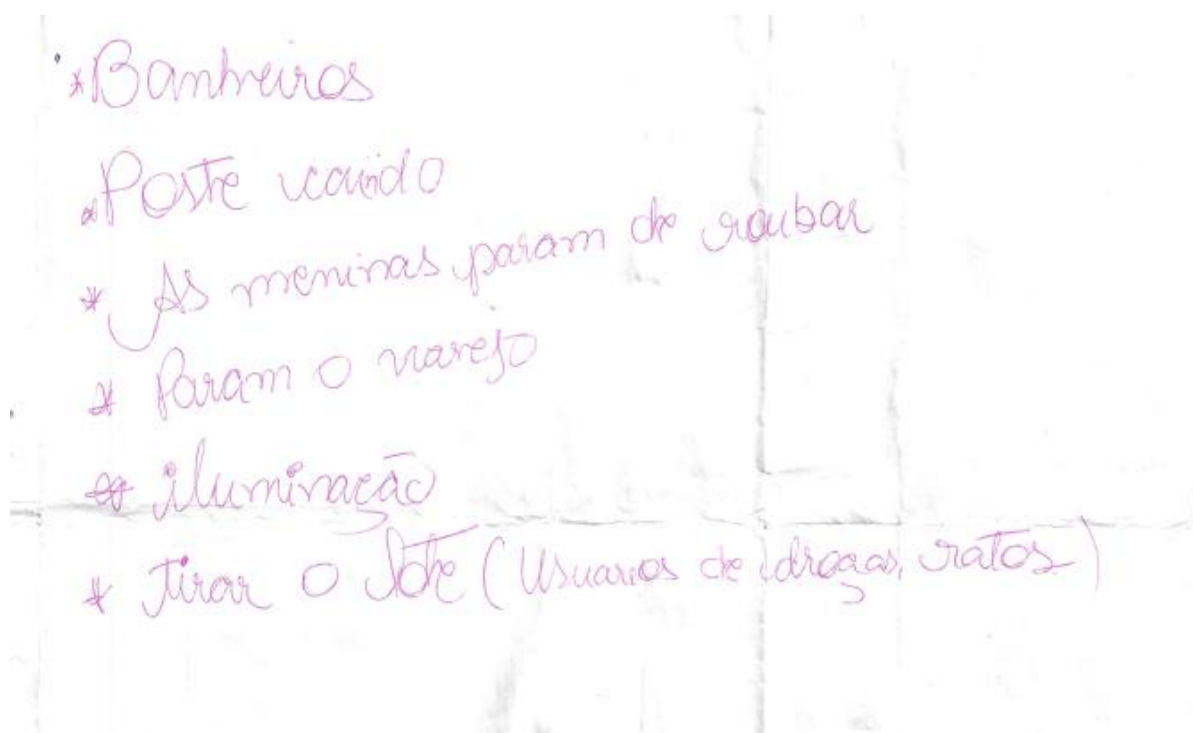 * Banheiros
* Poste caindo
* As meninas param de roubar
* Param o varejo
* iluminação
* Tirar o lote (Usuarios de drogas, ratos)